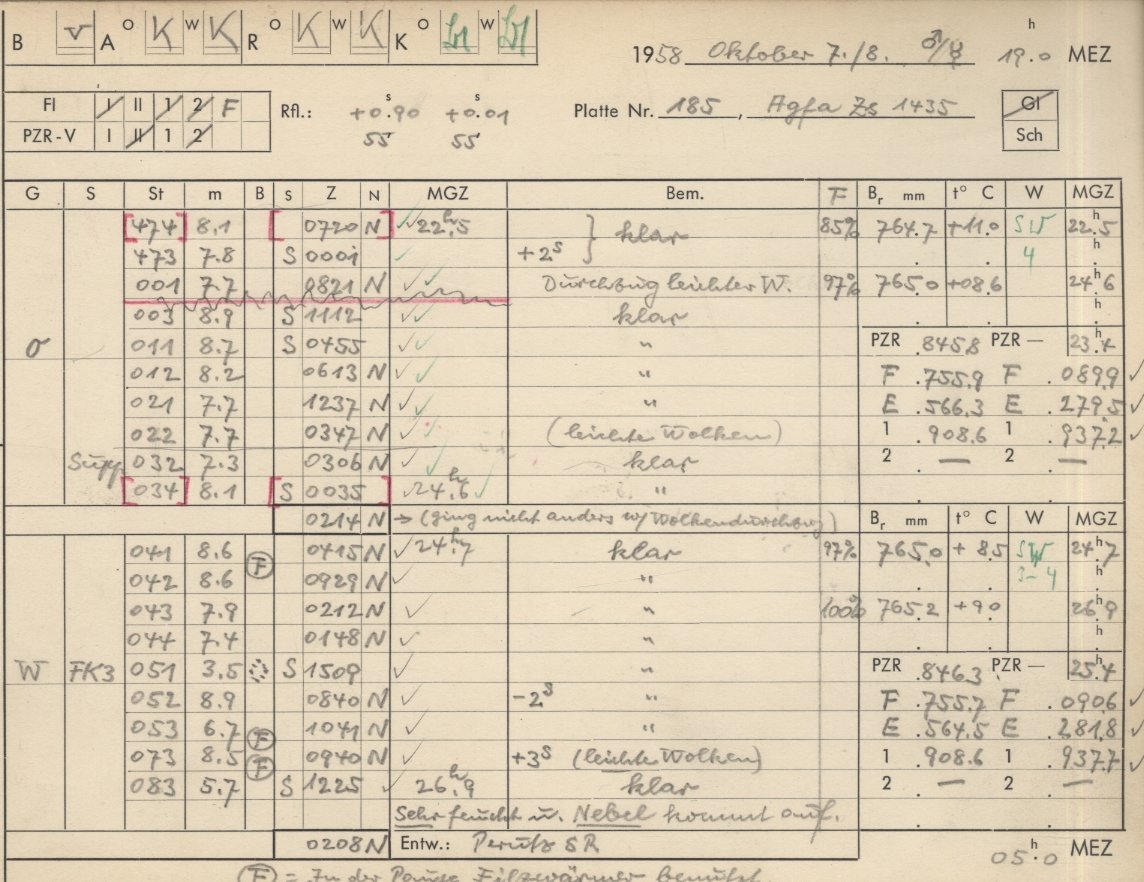 B v A O K W K R O K W K K O W
1958 Oktober 7./8. ♂/☿ 19.0 h MEZ
FI I II 1 2 F
PZR-V I II 1 2
Rfl.: +0.90 s +0.01 s
55 55
Platte Nr. 185, Agfa Zs 1435
GI
Sch
G S St m B S Z N MGZ Bem. F Br mm t° C W MGZ
[474] 8.1 [ 0720 N ] 22h.5 klar 85% 764.7 +11.0 SW 22.5 h
473 7.8 S 0001 +2s 4 h
001 7.7 0821 N Durchzug leichter W. 97% 765.0 +08.6 24.6 h
003 8.9 S 1112 klar h
O 011 8.7 S 0455 " PZR .8458 PZR — 23.4 h
012 8.2 0613 N " F .755.9 F .0899
021 7.7 1237 N " E .566.3 E .279.5
022 7.7 0347 N (leichte Wolken) 1 .908.6 1 .937.2
Supp 032 7.3 0306 N klar 2 — 2 —
[034] 8.1 [S 0035 ] 24h.6 "
0214 N → (ging nicht anders w/ Wolkendurchzug) Br mm t° C W MGZ
041 8.6 (F) 0415 N 24h.7 klar 97% 765.0 +8.5 SW 24.7 h
042 8.6 0929 N " 3-4 h
043 7.9 0212 N " 100% 765.2 +9.0 26.9 h
044 7.4 0148 N " h
W FK3 051 3.5 S 1509 " PZR .8463 PZR — 25.4 h
052 8.9 0840 N -2s " F .755.7 F .0906
053 6.7 (F) 1041 N " E .564.5 E .281.8
073 8.5 (F) 0940 N +3s (leichte Wolken) 1 .908.6 1 .937.7
083 5.7 S 1225 26h.9 klar 2 — 2 —
Sehr feucht u. Nebel kommt auf.
0208 N Entw.: Perutz SR 05.0 h MEZ
(F) = In der Pause Filzwärmer benutzt.